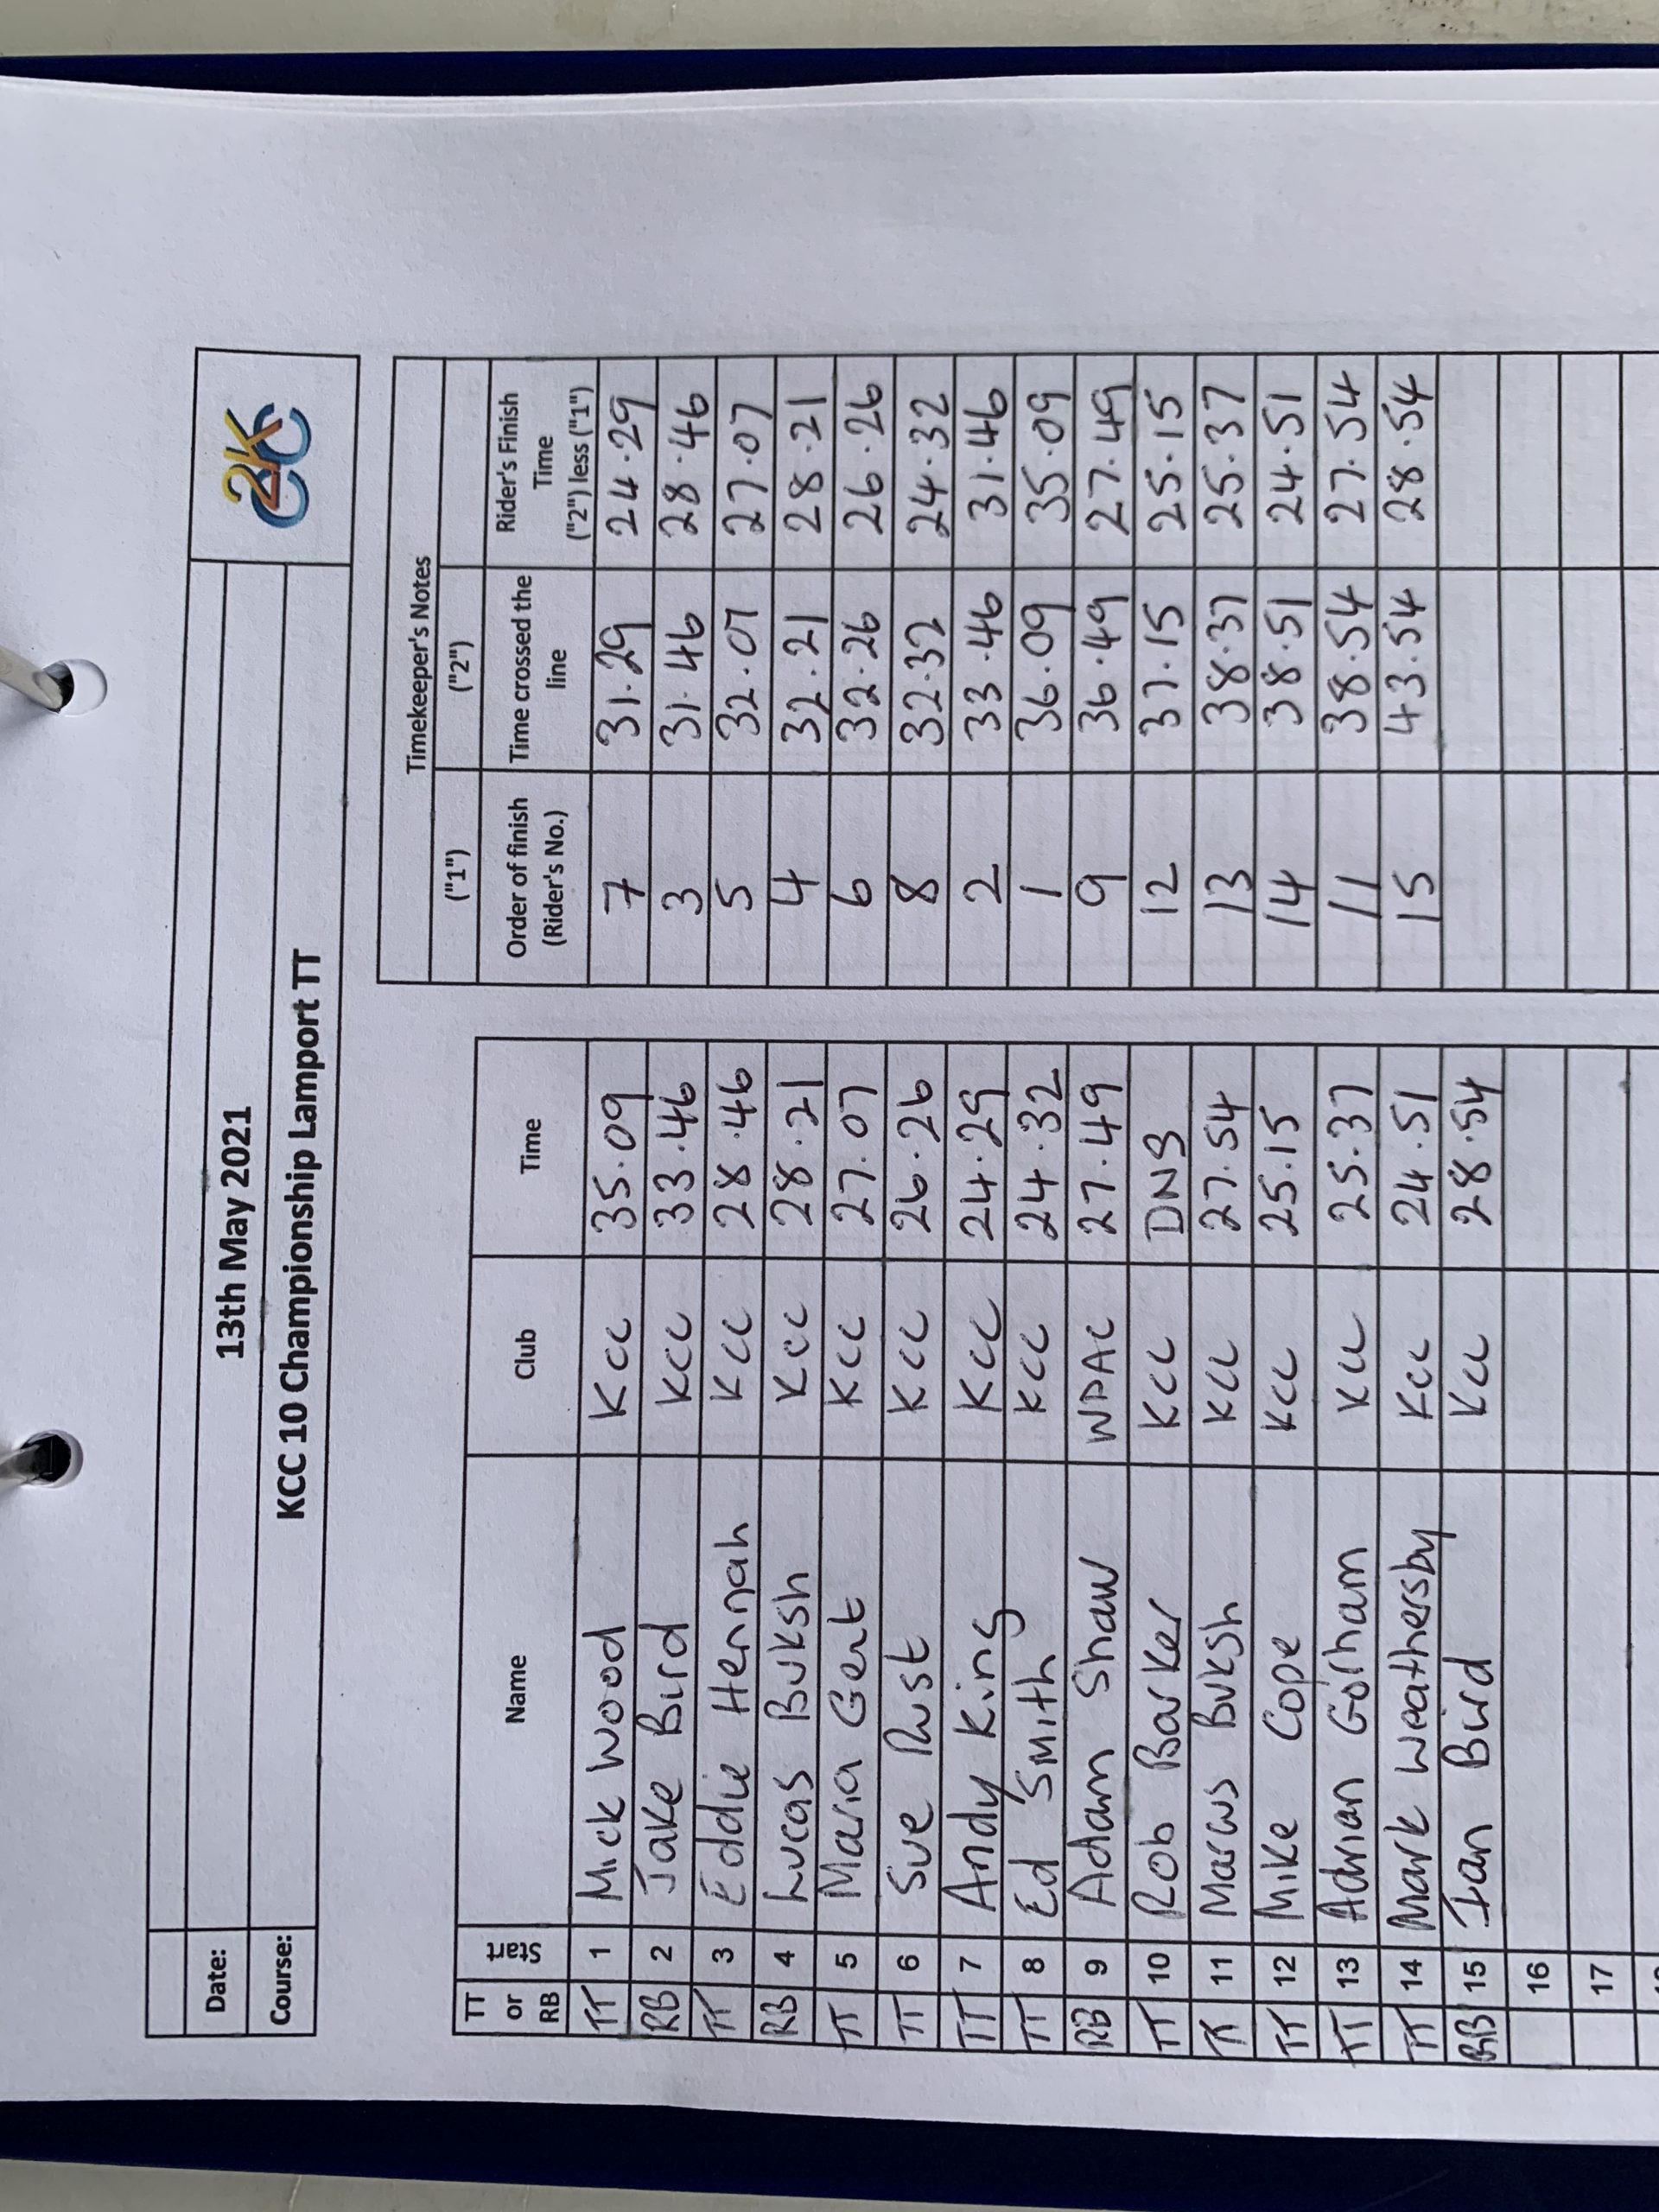 Date: 13th May 2021
Course: KCC 10 Championship Lamport TT
C2K
Timekeeper's Notes
("1") ("2")
TT or RB Start Name Club Time Order of finish (Rider's No.) Time crossed the line Rider's Finish Time ("2") less ("1")
TT 1 Mick Wood KCC 35.09 7 31.29 24.29
RB 2 Jake Bird KCC 33.46 3 31.46 28.46
TT 3 Eddie Hennah KCC 28.46 5 32.07 27.07
RB 4 Lucas Buksh KCC 28.21 4 32.21 28.21
TT 5 Maria Gent KCC 27.07 6 32.26 26.26
TT 6 Sue Rust KCC 26.26 8 32.32 24.32
TT 7 Andy King KCC 24.29 2 33.46 31.46
TT 8 Ed Smith KCC 24.32 1 36.09 35.09
RB 9 Adam Shaw WPAC 27.49 9 36.49 27.49
TT 10 Rob Barker KCC DNS 12 37.15 25.15
TT 11 Marcus Buksh KCC 27.54 13 38.37 25.37
TT 12 Mike Cope KCC 25.15 14 38.51 24.51
TT 13 Adrian Gorham KCC 25.37 11 38.54 27.54
TT 14 Mark Weathersby KCC 24.51 15 43.54 28.54
RB 15 Ian Bird KCC 28.54
16
17